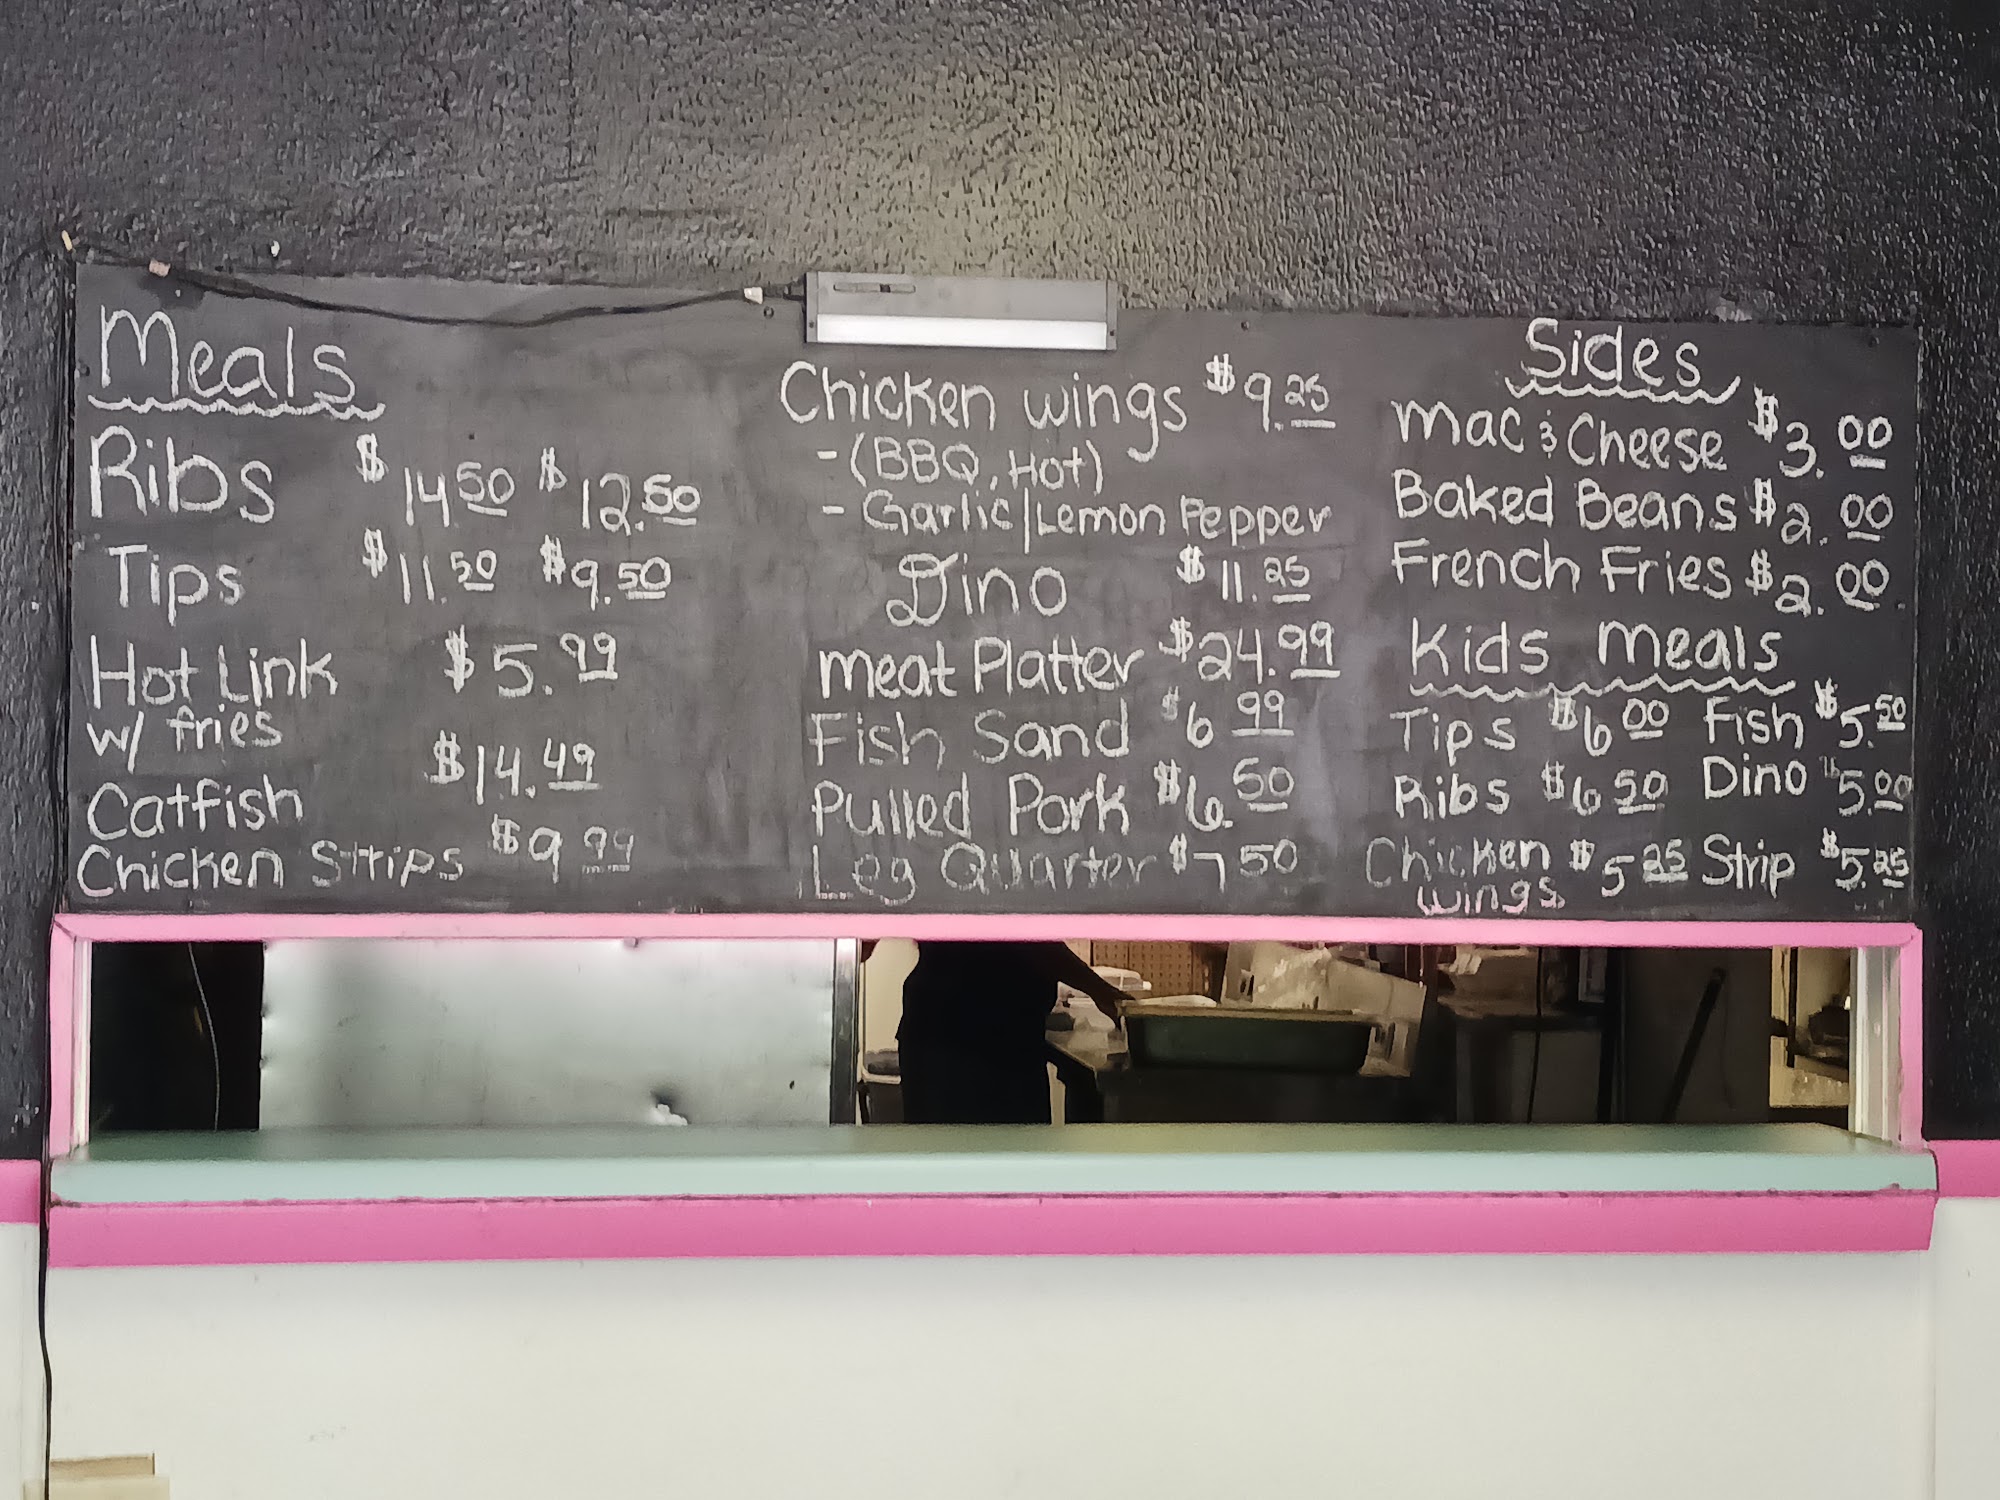 Meals
Ribs $14.50 $12.50
Tips $11.50 $9.50
Hot Link $5.99
w/ fries
Catfish $14.49
Chicken Strips $9.99
Chicken wings $9.25
- (BBQ, Hot)
- Garlic/Lemon Pepper
Dino $11.25
Meat Platter $24.99
Fish Sand $6 99
Pulled Pork $6.50
Leg Quarter $7 50
Sides
Mac & Cheese $3.00
Baked Beans $2.00
French Fries $2.00
Kids Meals
Tips $6 00 Fish $5.50
Ribs $6 50 Dino $5.00
Chicken $5 25 Strip $5.25
wings